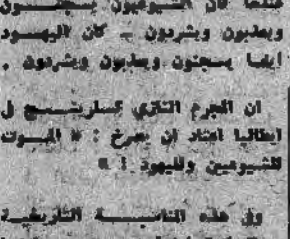 عندما كان الشيوعيون يسجنــون
ويعذبون ويشردون ـ كان اليهــود
ايضا يسجنون ويعذبون ويشردون .
ان المجرم النازي كسلرينــج ل
ايطاليا اعتاد ان يصرخ : « المــوت
للشيوعيين ولليهود ! »
وفي هذه المناسبــــة التاريخيــة